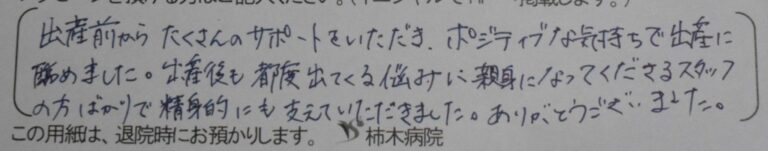 出産前からたくさんのサポートをいただき、ポジティブな気持ちで出産に
臨めました。出産後も都度出てくる悩みに親身になってくださるスタッフ
の方ばかりで精身的にも支えていただきました。ありがとうございました。
この用紙は、退院時にお預かりします。 柿木病院